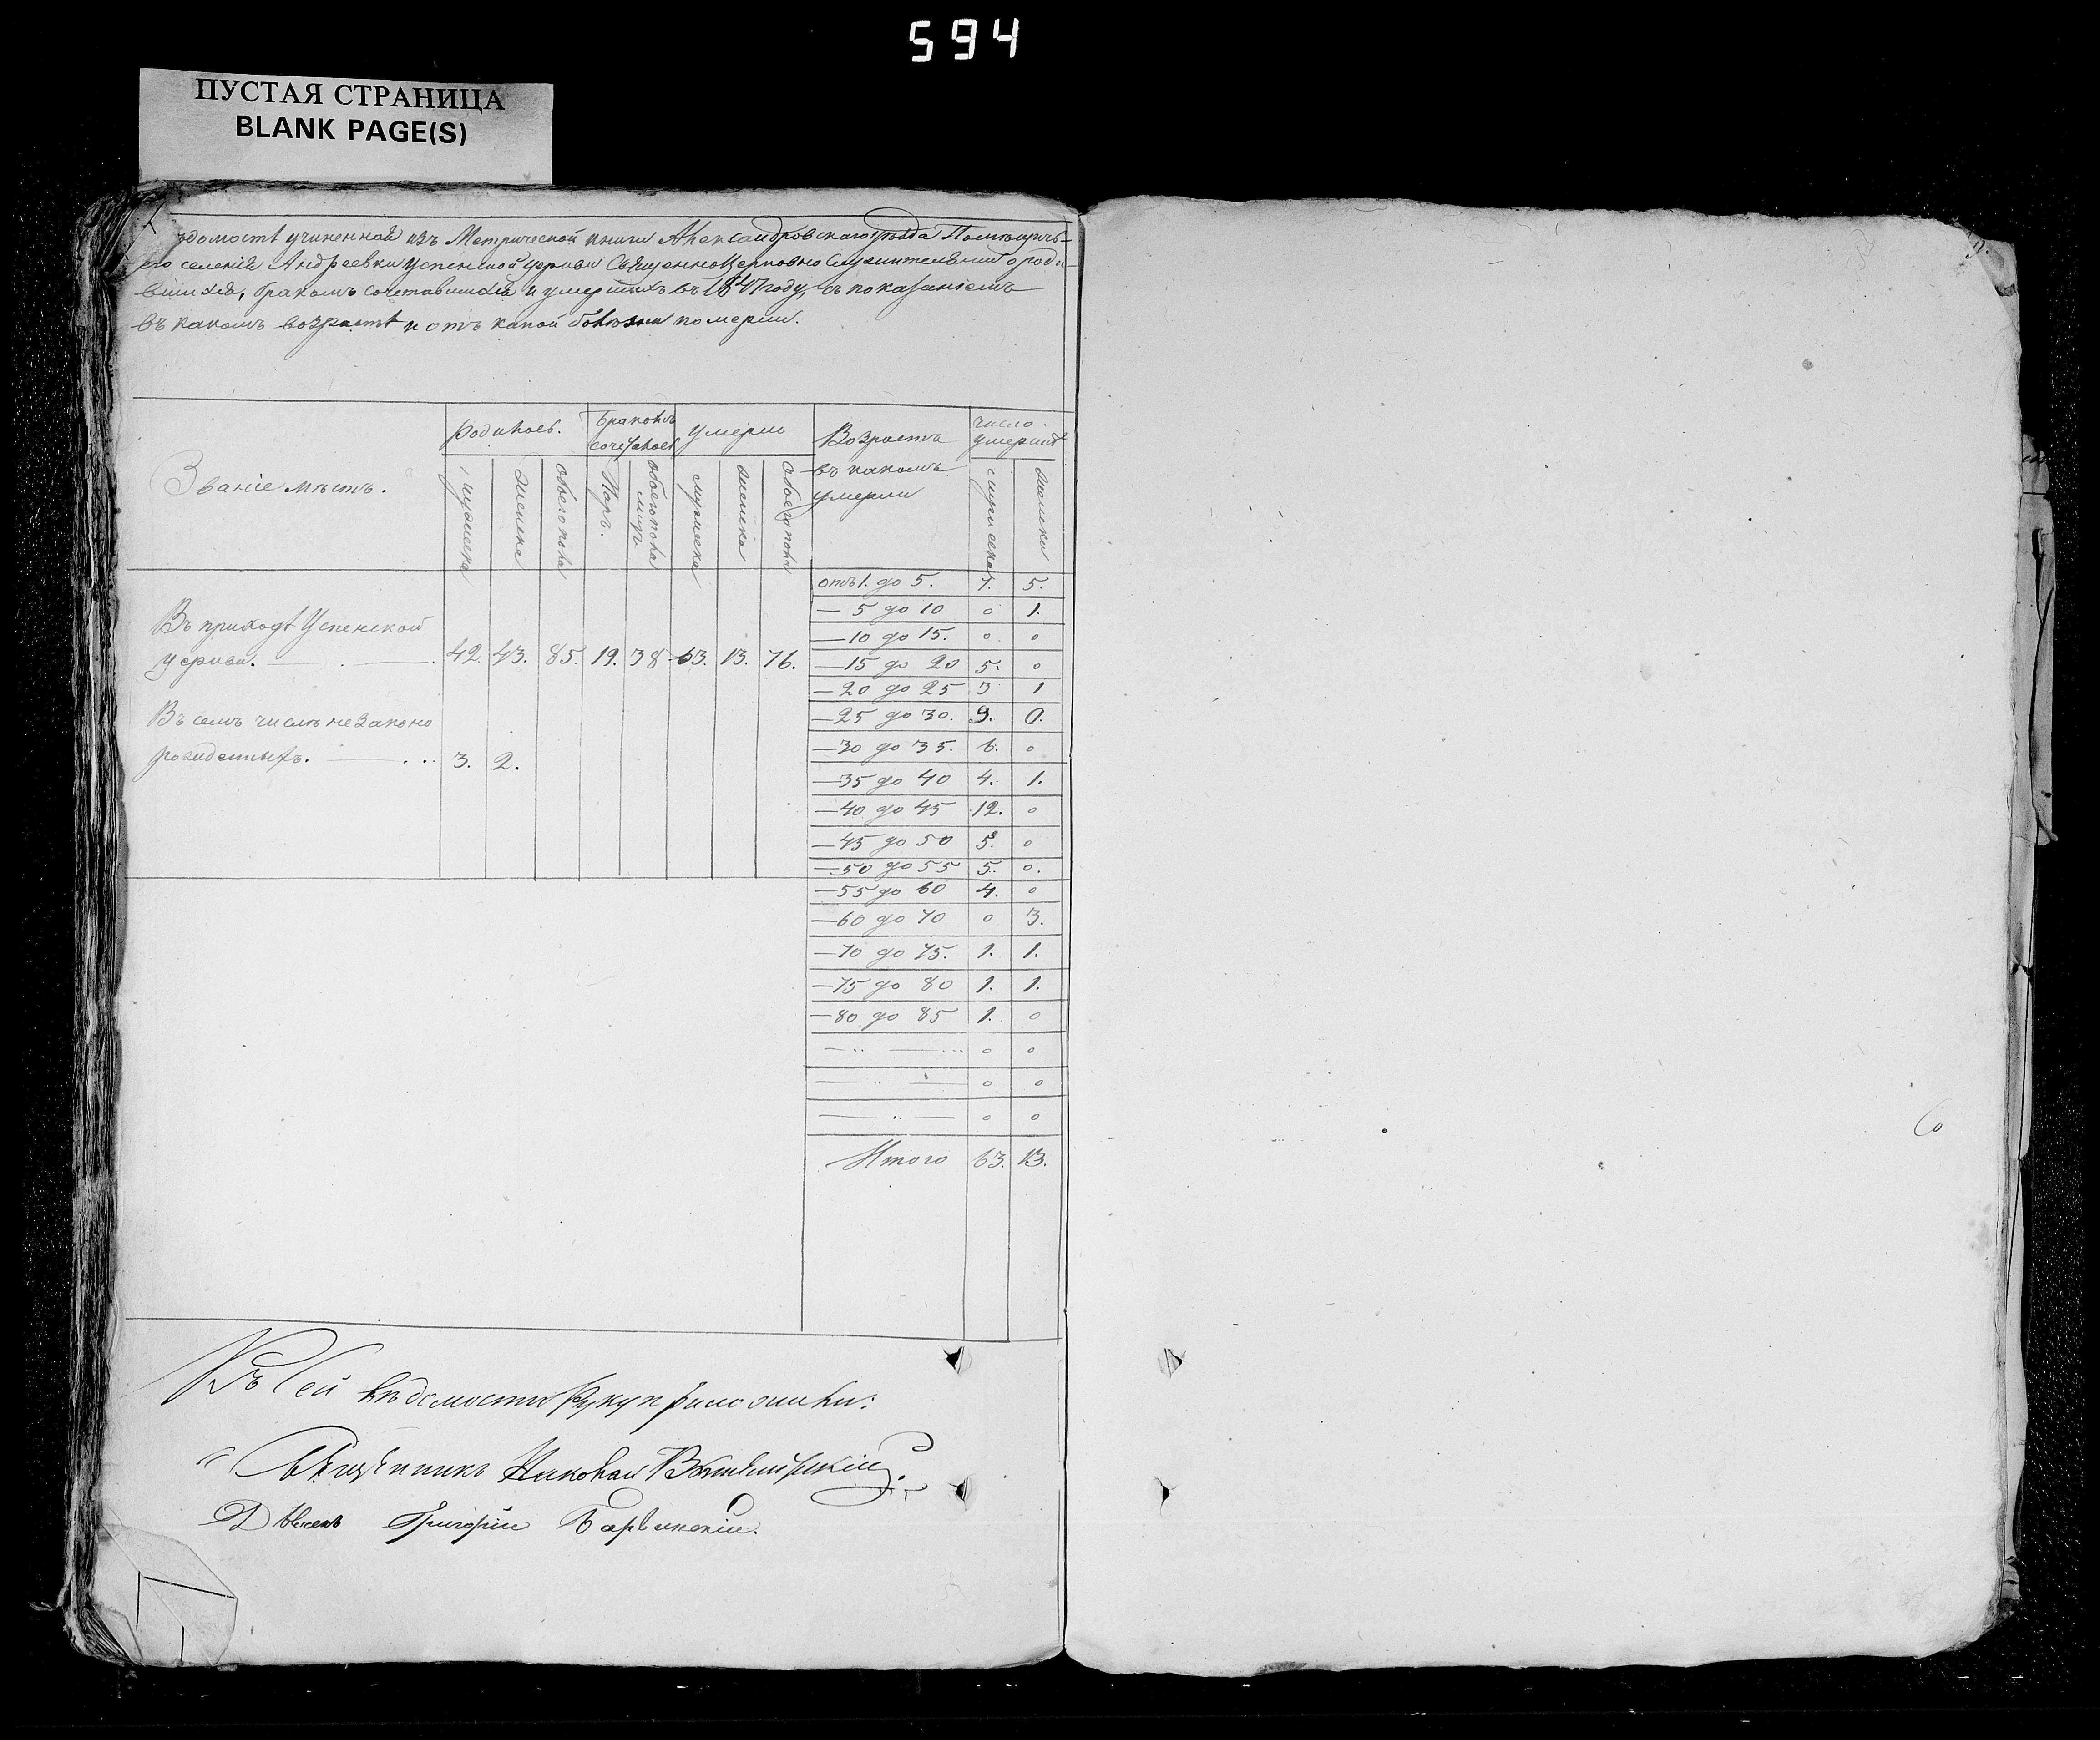 594
ПУСТАЯ СТРАНИЦА
BLANK PAGE(S)
вѣдомость учиненная изъ Метрической книги Александровскаго уѣзда Помѣщичь-
его селенія Андреевки Успенской церкви Священноцерковно служителями о роди-
вшихся, бракомъ сочетавшихся и умершихъ въ 1847 году, съ показаніемъ
въ какомъ возрастѣ и отъ какой болѣзни померли.
Званіе мѣстъ.
родилось.
Бракомъ сочеталось
умерло
Возрастъ въ какомъ умерли
число умершихъ
мужеска
женска
обоего пола
Паръ.
обоего пола лицъ
мужеска
женска
обоего пола
мужеска
женска
Въ приходѣ Успенской
церкви. 42. 43. 85. 19. 38 63. 13. 76.
Въ семъ числѣ незаконо
рожденныхъ. 3. 2.
отъ 1. до 5. 7. 5.
— 5 до 10 0 1.
— 10 до 15. 0 0
— 15 до 20 5. 0
— 20 до 25 3 1
— 25 до 30. 9. 0.
— 30 до 35. 6. 0
— 35 до 40 4. 1.
— 40 до 45 12. 0
— 45 до 50 5. 0
— 50 до 55 5. 0.
— 55 до 60 4. 0
— 60 до 70 0 3.
— 70 до 75. 1. 1.
— 75 до 80 1. 1.
— 80 до 85 1. 0
0 0
0 0
0 0
Итого 63. 13.
Къ сей вѣдомости руку приложили:
Священникъ Николай
Дьячекъ Григорій Барвинскій.